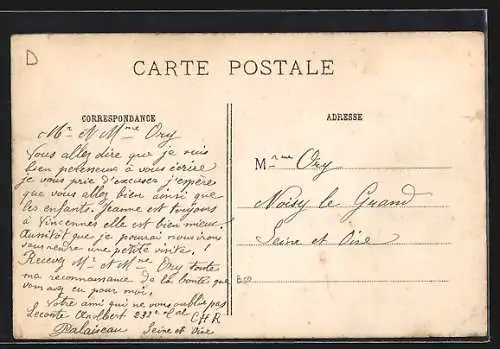 D
CARTE POSTALE
CORRESPONDANCE
ADRESSE
Mr et Mme Ory
Vous allez dire que je suis
bien paresseux à vous écrire
je vous prie d'excuser j'espère
que vous allez bien ainsi que
les enfants. Jeanne est toujours
à Vincennes elle est bien mieux.
Aussitôt que je pourai nous irons
vous rendre une petite visite !
Recevez Mr et Mme Ory toute
ma reconnaissance de la bonté que
vous avez eu pour moi.
Votre ami qui ne vous oublie pas
Leconte 232e
C H R
Palaiseau Seine et Oise
Mme Ory
Noisy le Grand
Seine et Oise